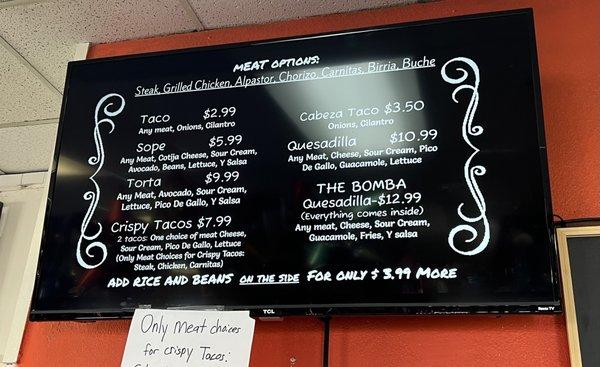 MEAT OPTIONS:
Steak, Grilled Chicken, Alpastor, Chorizo, Carnitas, Birria, Buche
Taco $2.99
Any meat, Onions, Cilantro
Sope $5.99
Any Meat, Cotija Cheese, Sour Cream,
Avocado, Beans, Lettuce, Y Salsa
Torta $9.99
Any Meat, Avocado, Sour Cream,
Lettuce, Pico De Gallo, Y Salsa
Crispy Tacos $7.99
2 tacos: One choice of meat Cheese,
Sour Cream, Pico De Gallo, Lettuce
(Only Meat Choices for Crispy Tacos:
Steak, Chicken, Carnitas)
Cabeza Taco $3.50
Onions, Cilantro
Quesadilla $10.99
Any Meat, Cheese, Sour Cream, Pico
De Gallo, Guacamole, Lettuce
THE BOMBA
Quesadilla-$12.99
(Everything comes inside)
Any meat, Cheese, Sour Cream,
Guacamole, Fries, Y salsa
ADD RICE AND BEANS ON THE SIDE FOR ONLY $3.99 MORE
TCL
Roku TV
Only Meat choices
for crispy Tacos: